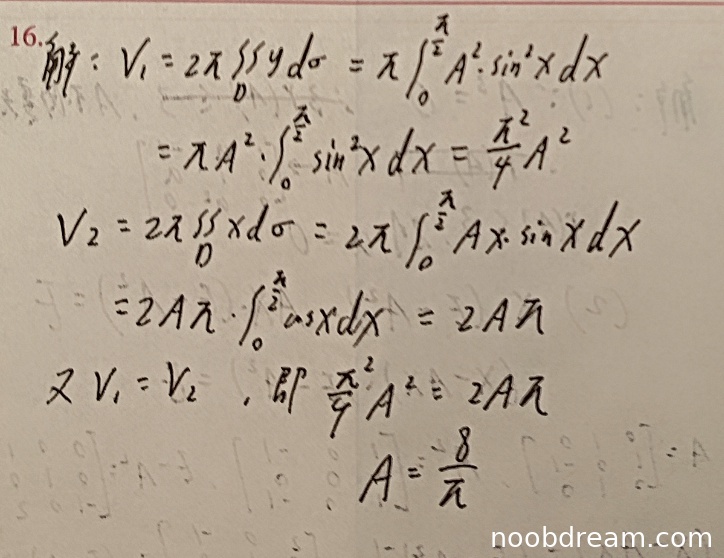 16. 解: V₁ = 2π∬_D y dσ = π∫₀^{π/2} A²·sin²x dx
= πA²·∫₀^{π/2} sin²x dx = π²/4 A²
V₂ = 2π∬_D x dσ = 2π∫₀^{π/2} Ax·sinx dx
= 2Aπ·∫₀^{π/2} cosx dx = 2Aπ
又 V₁ = V₂ , 即 π²/4 A² = 2Aπ
A = 8/π
noobdream.com